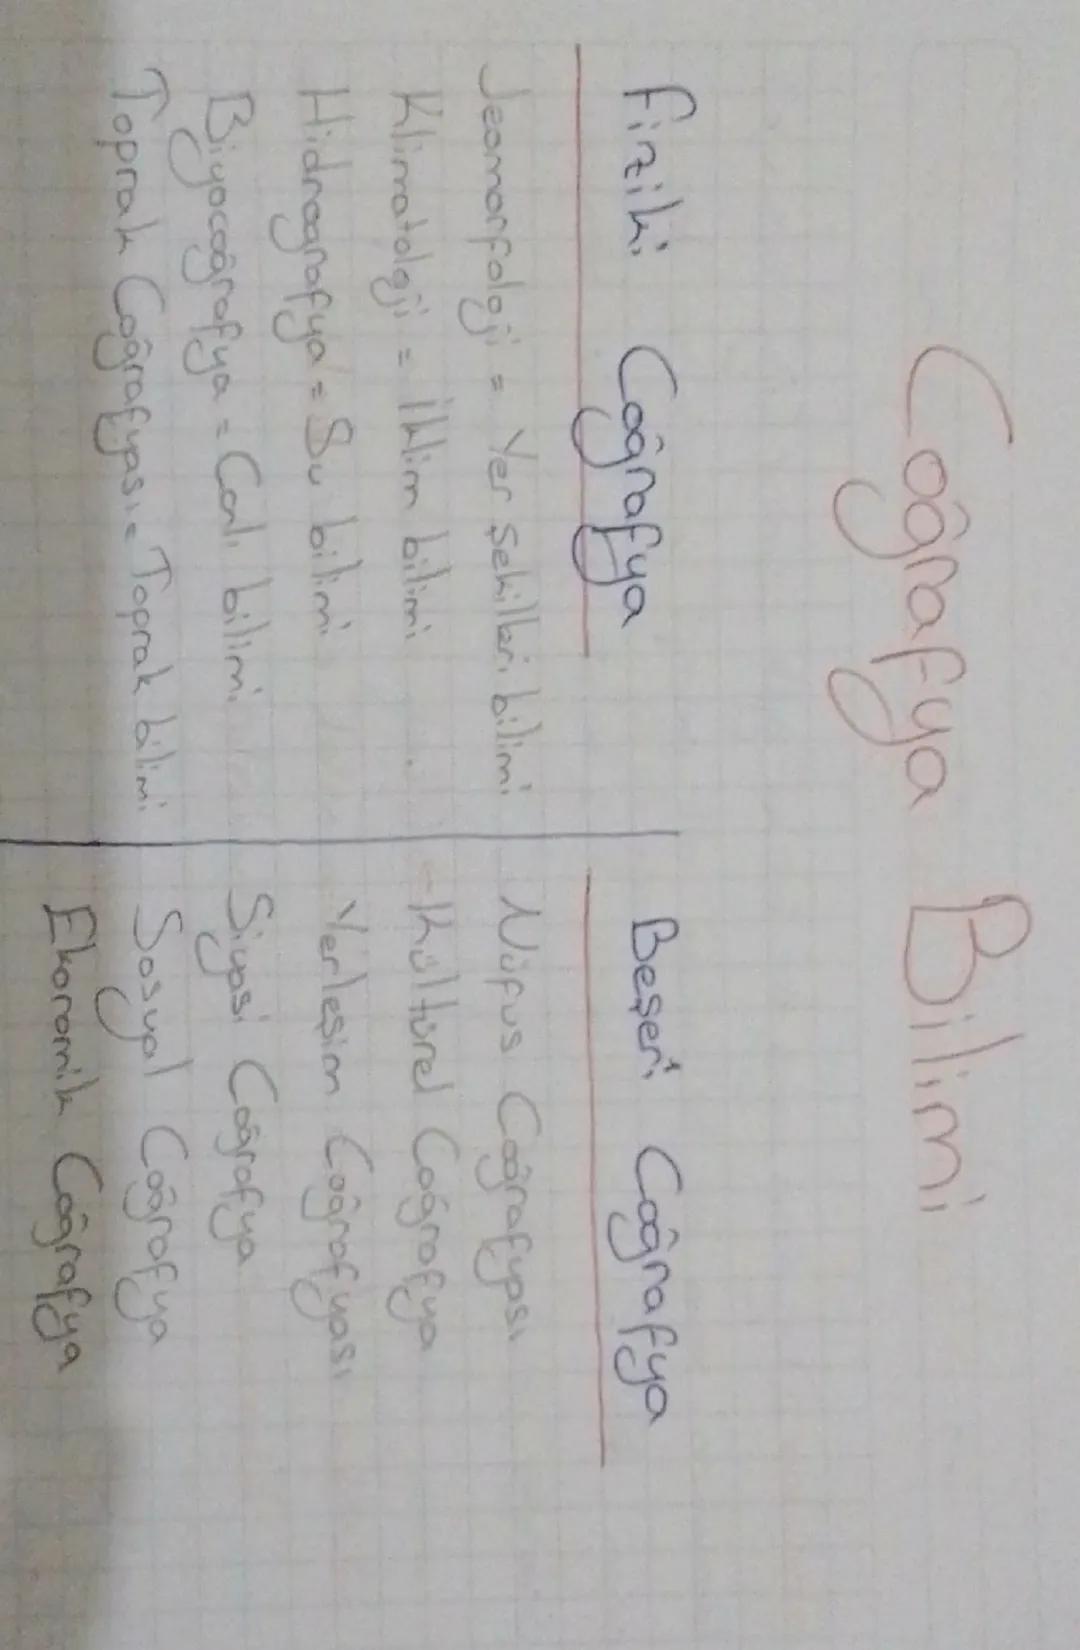 Coğrafya Bilimi
Fiziki Coğrafya
Jeomorfoloji = Yer Şekilleri bilimi
Klimatoloji = İklim bilimi
Hidrografya = Su bilimi
Biyocoğrafya = Canlı bilimi
Toprak Coğrafyası = Toprak bilimi
Beşeri Coğrafya
Nüfus Coğrafyası
-Kültürel Coğrafya
Yerleşim Coğrafyası
Siyasi Coğrafya
Sosyal Coğrafya
Ekonomik Coğrafya